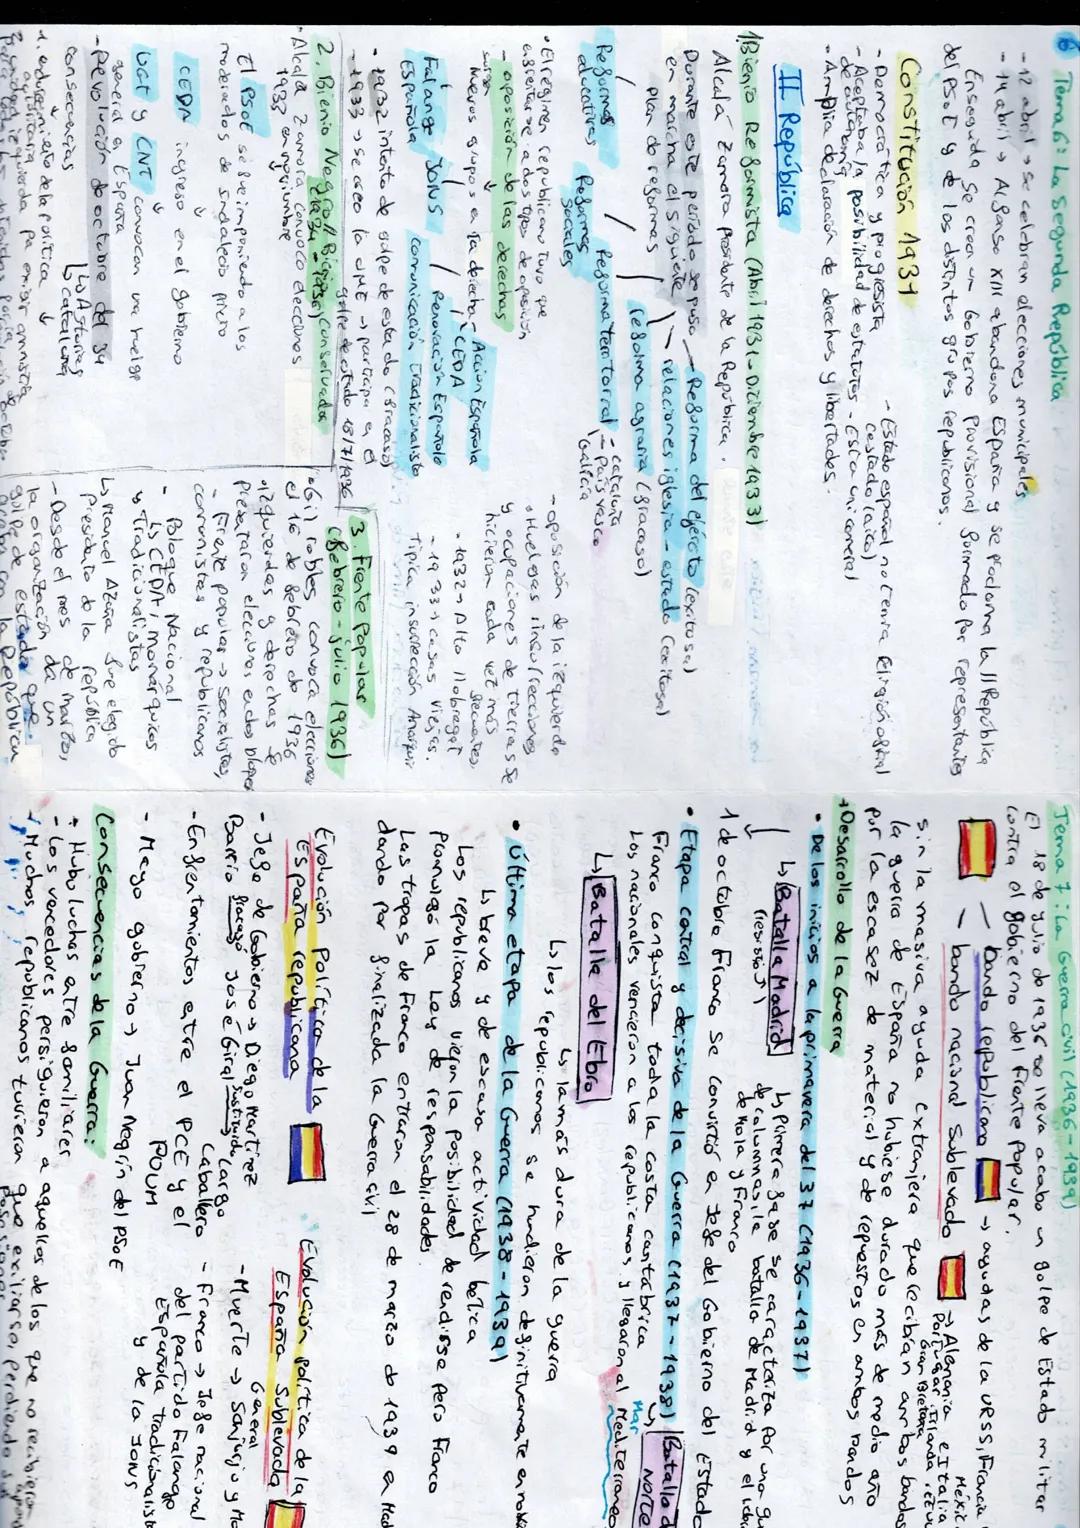 Tema 6: La segunda República
- 12 abril → se celebran elecciones municipales
- 14 abril → Alfonso XIII abandona España y se proclama la II República
Enseguida se crea un Gobierno Provisional formado por representantes
del PSOE y de los distintos grupos republicanos.
Constitución 1931
- Democrática y progresista
- Estado español no tenía Religión oficial
(estado laico)
- Aceptaba la posibilidad de estatutos
de autonomía
- Estra unicameral
- Amplia declaración de derechos y libertades.
II República
1. Bienio Reformista (Abril 1931 - Diciembre 1933)
Alcalá Zamora presidente de la República.
Durante este período se puso
en marcha el siguiente
plan de reformas
Reforma del ejército (exitosa)
relaciones iglesia - estado (exitosa)
reforma agraria (fracaso)
Reforma territorial
- cataluña
- País vasco
Galicia
Reformas sociales
Reformas educativas
• El regimen republicano tuvo que
enfrentarse a dos tipos de oposición
- oposición de las derechas
surgen
Nuevos grupos en la derecha
- Acción Española
- CEDA
Renovación Española
comunicación Tradicionalista
JONS
Falange Española
- 1932 intento de golpe de estado (fracaso)
- 1933 → se creo la UME → participa en el
golpe de estado 18/7/1936
- oposición de la izquierda
→ Huelgas insurrecciones
y ocupaciones de tierras se
hicieron cada vez más
frecuentes.
• 1932 → Alto llobregat
- 1933 → casas viejas.
Tipica insurrección
2. Bienio Negro // Bienio conservador
• Alcalá Zamora convocó elecciones
1933 en noviembre
El PSOE se ve imponiendo a los
moderados de Indalecio prieto
CEDA ingreso en el gobierno
UGT y CNT convocan una huelga
general en España
- Revolución de octubre del 34
↳ Asturias
↳ cataluña
consecuencias
1. endurecimiento de la política
3. Frente Popular
(febrero - julio 1936)
• Gil robles convoca elecciones
el 16 de febrero de 1936
izquierdas y derechas se
presentan elecciones en dos bloques
- Frente popular → socialistas,
comunistas y republicanos
- Bloque Nacional
↳ CEDA, monárquicos
y Tradicionalistas
↳ Manuel Azaña fue elegido
presidente de la república
- Desde el mes de marzo,
la organización de un
golpe de estado que
acaba con la república
Tema 7: La Guerra civil (1936 - 1939)
El 18 de julio de 1936 se lleva acabo un golpe de Estado militar
contra el gobierno del Frente Popular.
- bando republicano → ayudas de la URSS, Francia
México
- bando nacional sublevado → Alemania e Italia
Portugal, Irlanda
Gran Bretaña
sin la masiva ayuda extranjera que recibían ambos bandos
la guerra de España no hubiese durado más de medio año
por la escasez de material y de repuestos en ambos bandos
→ Desarrollo de la Guerra
• De los inicios a la primavera del 37 (1936-1937)
↳ Batalla Madrid
↳ primera fase se caracteriza por una
de columnas, la batalla de Madrid y el
de Mola y Franco
1 de octubre Franco se convirtió en Jefe del Gobierno del Estado
• Etapa central y decisiva de la Guerra (1937 - 1938)
↳ Batalla d
Norte
Franco conquista toda la costa cantabrica
Los nacionales vencieron a los republicanos y llegaron al Mar
Mediterraneo
↳ Batalla del Ebro
↳ la más dura de la guerra
↳ los republicanos se hundieron definitivamente
• Última etapa de la Guerra (1938 - 1939)
↳ breve y de escasa actividad bélica
Los republicanos vieron la posibilidad de rendirse pero Franco
promulgó la Ley de responsabilidades.
Las tropas de Franco entraron el 28 de marzo de 1939 en Mad
dando por finalizada la Guerra civil
Evolución Política de la
España republicana
- Jefe de Gobierno → Diego Martínez
Barrio fracasó José Giral sustituido Largo
Caballero
- Enfrentamientos entre el PCE y el
POUM
- Nuevo gobierno → Juan Negrín del PSOE
Evolución política de la
España Sublevada
- Muerte → Sanjurjo y Mo
General
- Franco → Jefe nacional
del partido Falange
Española tradicionalista
y de la JONS
Consecuencias de la Guerra:
* Hubo luchas entre familiares
- Los vencedores persiguieron a aquellos de los que no recibieron
- Muchos republicanos tuvieron que exiliarse, perdiendo